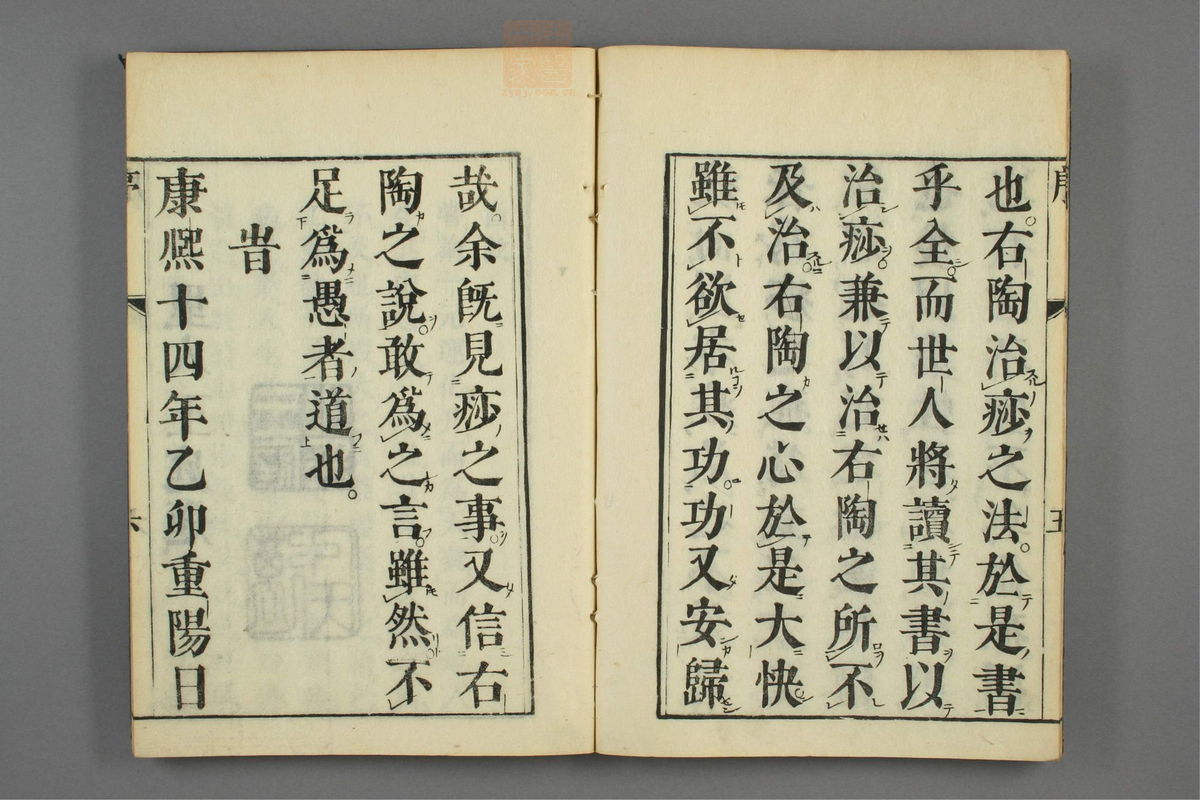 序
也。右陶治痧之法。於是書
乎全。而世人將讀其書以
治痧兼以治右陶之所不
及治右陶之心於是大快
雖不欲居其功功又安歸
五
哉。余旣見痧之事。又信右
陶之說。敢爲之言。雖然不
足爲愚者道也。
旹
康熙十四年乙卯重陽日
序
六